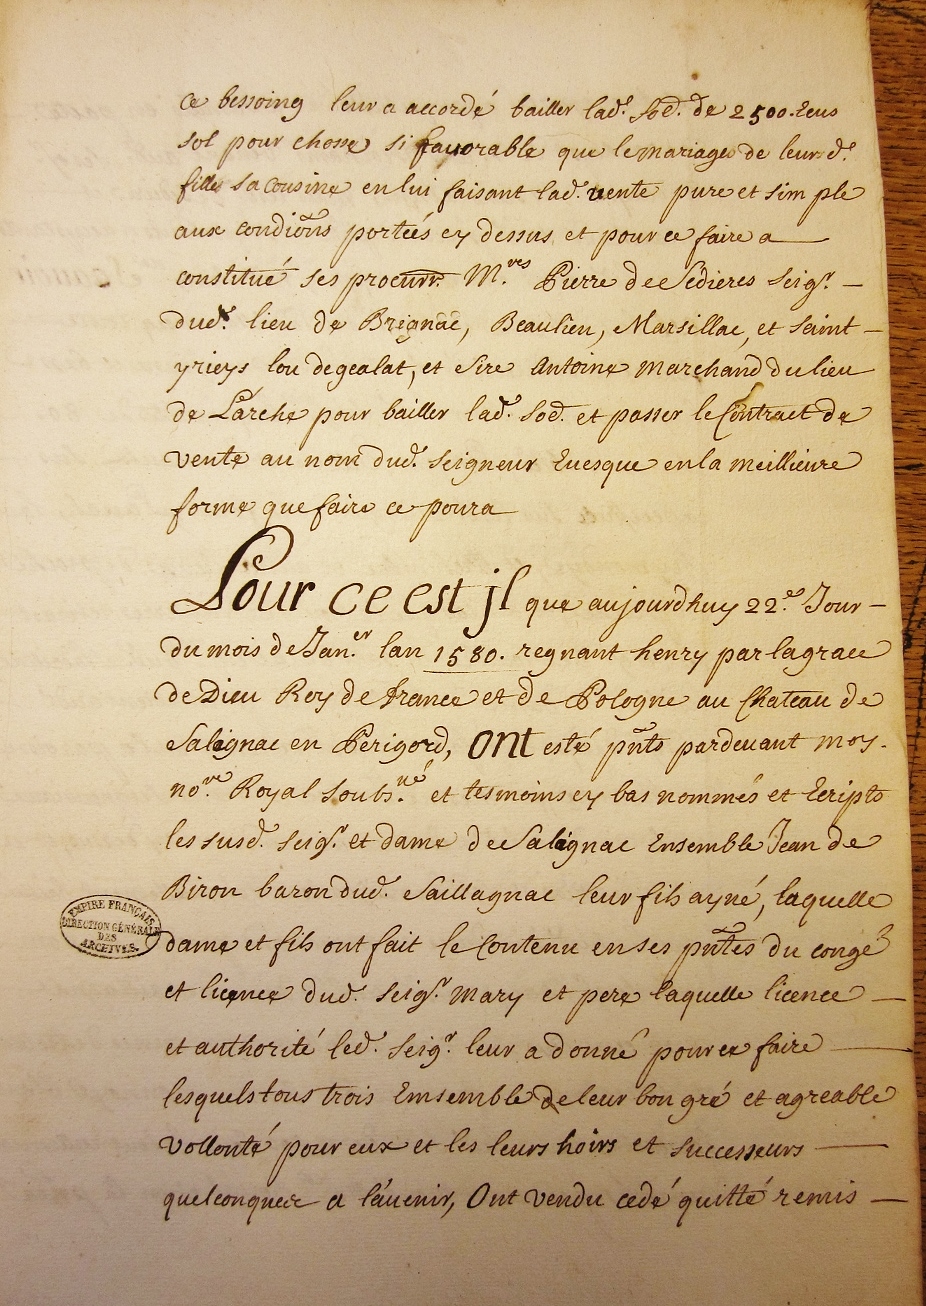 ce bessoing leur a accordé bailler lad.e so͠e. de 2500. Ecus
sol pour chosse si favorable que le mariage de leur d.e
fille sa cousine en lui faisant lad. vente pure et simple
aux condio͠ns portées cy dessus et pour ce faire a
constitué ses procurr. M.res Pierre de Sedieres Seig.r —
dud. lieu de Brignac, Beaulieu, Marsillac, et Saint —
yrieys lou degealat, et Sire Antoine Marchand du lieu
de Larche pour bailler lad. so͠e. et passer le Contract de
vente au nom dud. Seigneur Evesque en la meillieure
forme que faire ce poura
Pour ce est jl que aujourdhuy 22.e Jour —
du mois de Jan.er lan 1580. regnant henry par la grace
de Dieu Roy de france et de Pologne au Chateau de
Salignac en Perigord, Ont esté pn͠ts pardevant moy.
no.re Royal soubs.né et tesmoins cy bas nommés et Ecripts
les susd. Seig.r et dame de Salignac Ensemble Jean de
Biron baron dud. Saillagnac leur fils ayné, laquelle
EMPIRE FRANÇAIS
DIRECTION GÉNÉRALE
DES
ARCHIVES.
dame et fils ont fait le Contenu en ses pn͠tes du congé
et licence dud. Seig.r Mary et pere laquelle licence —
et authorité led. Seig.r leur a donné pour ce faire —
lesquels tous trois Emsemble de leur bon gré et agreable
vollonté pour eux et les leurs hoirs et successeurs —
quelconques a l'avenir, Ont vendu cedé quitté remis —